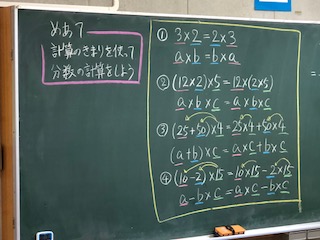 めあて
計算のきまりを使って
分数の計算をしよう
① 3×2=2×3
a×b=b×a
② (12×2)×5=12×(2×5)
a×b×c=a×b×c
③ (25+50)×4=25×4+50×4
(a+b)×c=a×c+b×c
④ (10-2)×15=10×15-2×15
a-b×c=a×c-b×c